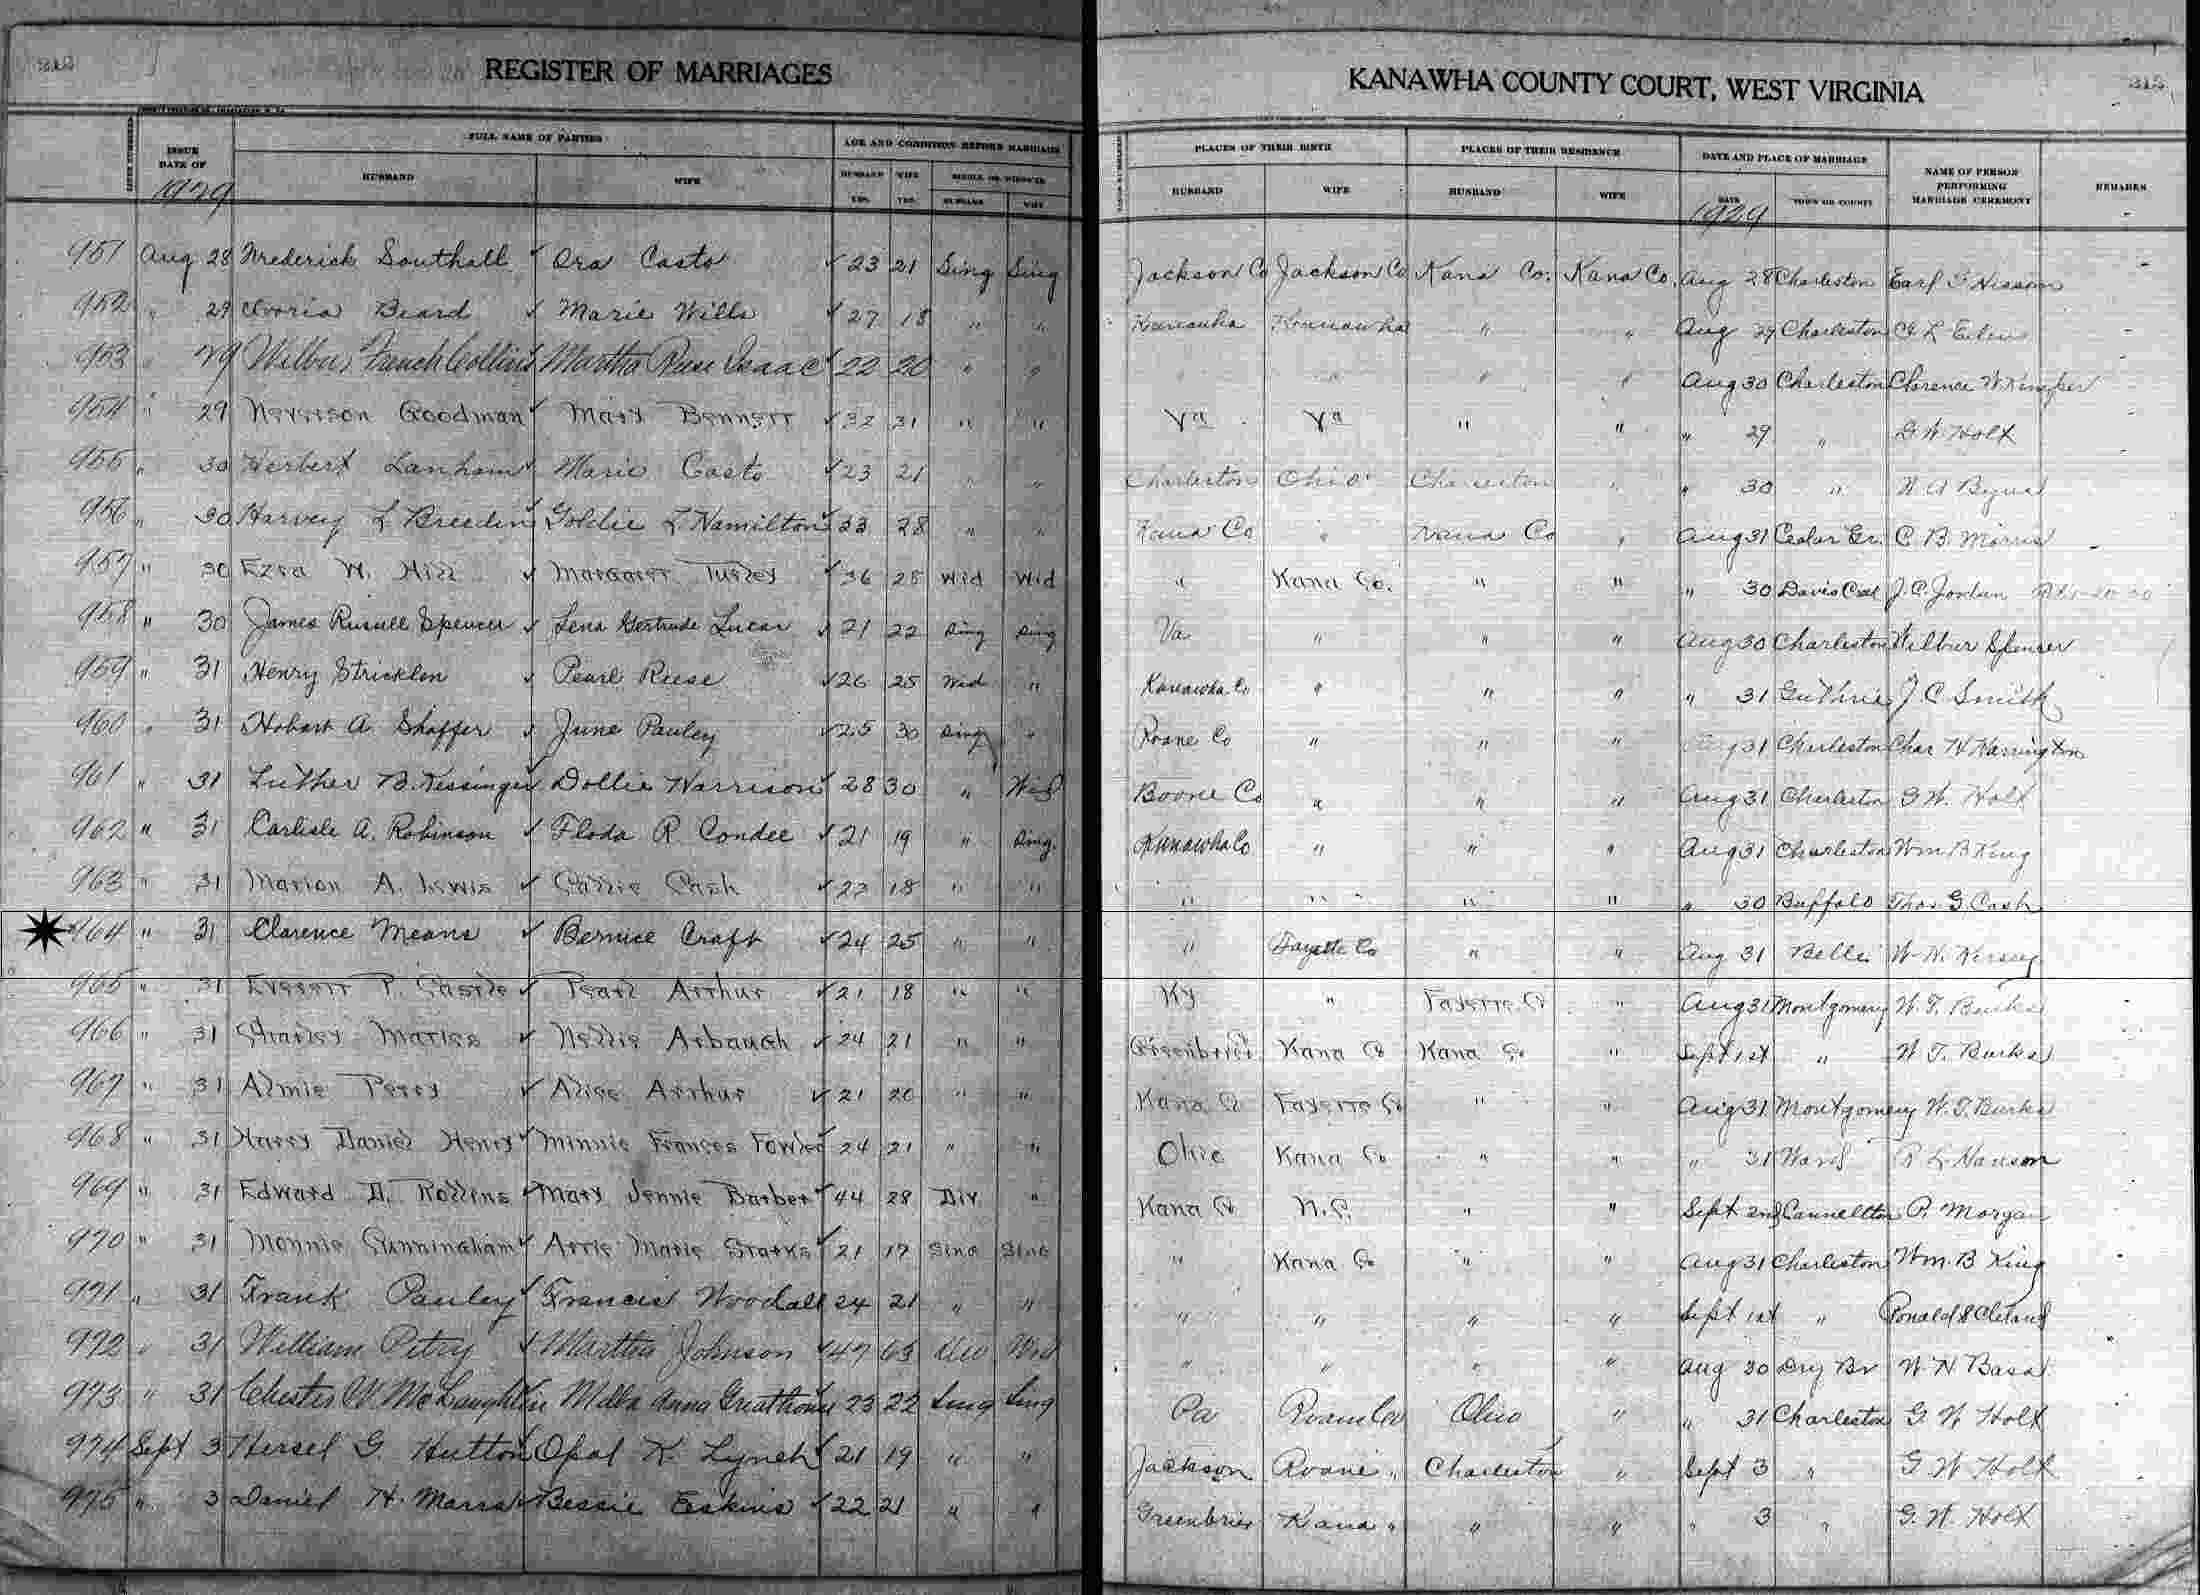 REGISTER OF MARRIAGES
KANAWHA COUNTY COURT, WEST VIRGINIA
ISSUE DATE OF 1929
FULL NAME OF PARTIES
HUSBAND WIFE
AGE AND CONDITION BEFORE MARRIAGE
HUSBAND YRS. WIFE YRS. SINGLE OR WIDOWED HUSBAND WIFE
PLACES OF THEIR BIRTH HUSBAND WIFE
PLACES OF THEIR RESIDENCE HUSBAND WIFE
DATE AND PLACE OF MARRIAGE DATE 1929 TOWN OR COUNTY
NAME OF PERSON PERFORMING MARRIAGE CEREMONY
REMARKS
951 Aug 28 Frederick Southall Ora Casto 23 21 Sing Sing Jackson Co Jackson Co Kana Co. Kana Co. Aug 28 Charleston Earl
952 " 29 Beard Marie Wills 27 18 " " Kanawha Kanawha " " Aug 29 Charleston
953 " 29 Wilbur French Collins Martha Rose Isaac 22 20 " " " " " " Aug 30 Charleston Clarence W Kimper
954 " 29 Goodman Mary Bennett 32 31 " " Va Va " " " 29 " G W Holt
955 " 30 Herbert Lanham Marie Casto 23 21 " " Charleston Ohio Charleston " " 30 "
956 " 30 Harvey L Breeden Goldie L Hamilton 33 28 " " Kana Co " Kana Co " Aug 31 Cedar Gr. C B Morris
957 " 30 Ezra W. Hill Margaret Turley 36 28 Wid Wid " Kana Co. " " " 30 Davis Creek J. C. Jordan
958 " 30 James Russell Spencer Lena Gertrude Lucas 21 22 Sing Sing Va " " " Aug 30 Charleston Wilbur Spencer
959 " 31 Henry Stricklen Pearl Reese 26 25 Wid " Kanawha Co " " " " 31 Guthrie J C Smith
960 " 31 Hobart A. Shaffer June Pauley 25 30 Sing " Roane Co " " " Aug 31 Charleston Chas H Harrington
961 " 31 Luther B. Kessinger Dollie Harrison 28 30 " Wid Boone Co " " " Aug 31 Charleston G W. Holt
962 " 31 Carlisle A. Robinson Floda R Condee 21 19 " Sing. Kanawha Co " " " Aug 31 Charleston Wm B King
963 " 31 Marion A. Lewis Callie Cash 22 18 " " " " " " " 30 Buffalo Thos G. Cash
964 " 31 Clarence Means Bernice Craft 24 25 " " " Fayette Co " " Aug 31 Belle W. H. Kersey
965 " 31 Everett P. Castle Pearl Arthur 21 18 " " Ky " Fayette Co " Aug 31 Montgomery W. T. Burks
966 " 31 Charley Marles Nellie Arbaugh 24 21 " " Greenbrier Kana Co Kana Co " Sept 1st " W T. Burks
967 " 31 Almie Perry Alice Arthur 21 20 " " Kana Co Fayette Co " " Aug 31 Montgomery W. T. Burks
968 " 31 Harry Daniel Henry Minnie Frances Fowler 24 21 " " Ohio Kana Co " " " 31 Ward R L Hanson
969 " 31 Edward D. Rollins Mary Jennie Barber 44 28 Div " Kana Co N.C. " " Sept 2nd Cannelton P. Morgan
970 " 31 Monnie Cunningham Arrie Marie Starks 21 17 Sing Sing " Kana Co " " Aug 31 Charleston Wm. B King
971 " 31 Frank Pauley Francis Woodall 24 21 " " " " " " Sept 1st "
972 " 31 William Petry Martha Johnson 47 63 Div Wid " " " " Aug 30 Dry Br W H Bass
973 " 31 Chester W McLaughlin Melba Anna Greathouse 23 22 Sing Sing Pa Roane Co Ohio " " 31 Charleston G. W Holt
974 Sept 3 Hersel G. Hutton Opal K. Lynch 21 19 " " Jackson Roane " Charleston " Sept 3 " G W Holt
975 " 3 Daniel H. Marrs Bessie Eskins 22 21 " " Greenbrier Kana " " " " 3 " G. W. Holt